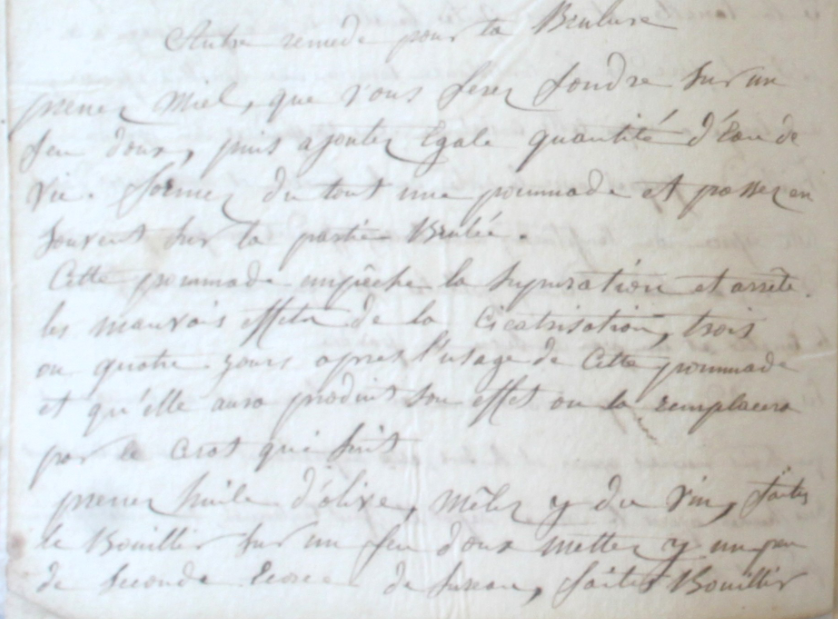 Autre remede pour la Brulure
prenez Miel, que vous ferez fondre sur un
feu doux, puis ajoutez Egale quantité d'Eau de
vie. formez du tout une pommade et passez en
souvent sur la partie Brulée.
Cette pommade empêche la supuration et arrête
les mauvais effets de la Cicatrisation, trois
ou quatre jours apres l'usage de Cette pommade
et qu'elle aura produit son effet on la remplacera
par le Cerot qui suit
prenez huile d'olive, mêlez y du vin, faites
le Bouillir sur un feu doux mettez y un peu
de seconde Ecorce de sureau, faites Bouillir